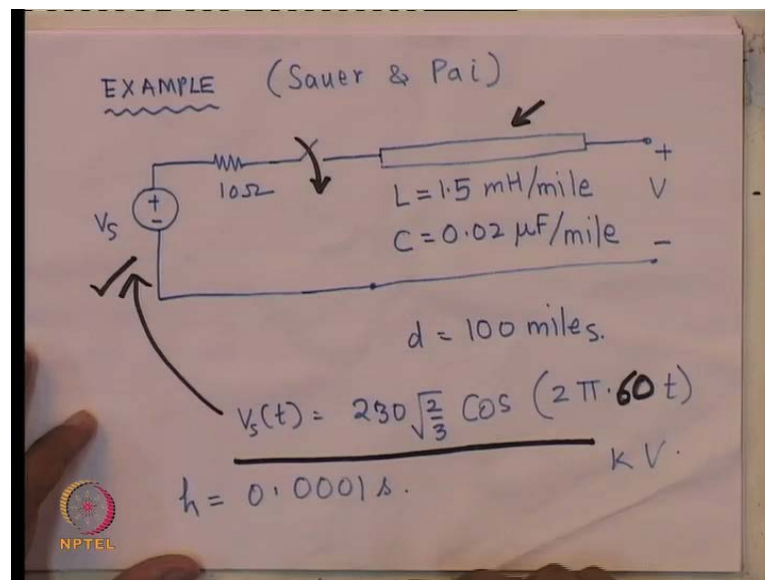 EXAMPLE (Sauer & Pai)
10Ω
Vs
+
-
L=1.5 mH/mile
C=0.02 μF/mile
+
V
-
d = 100 miles.
Vs(t) = 230√(2/3) Cos (2π.60t)
KV.
h = 0.0001 s.
NPTEL